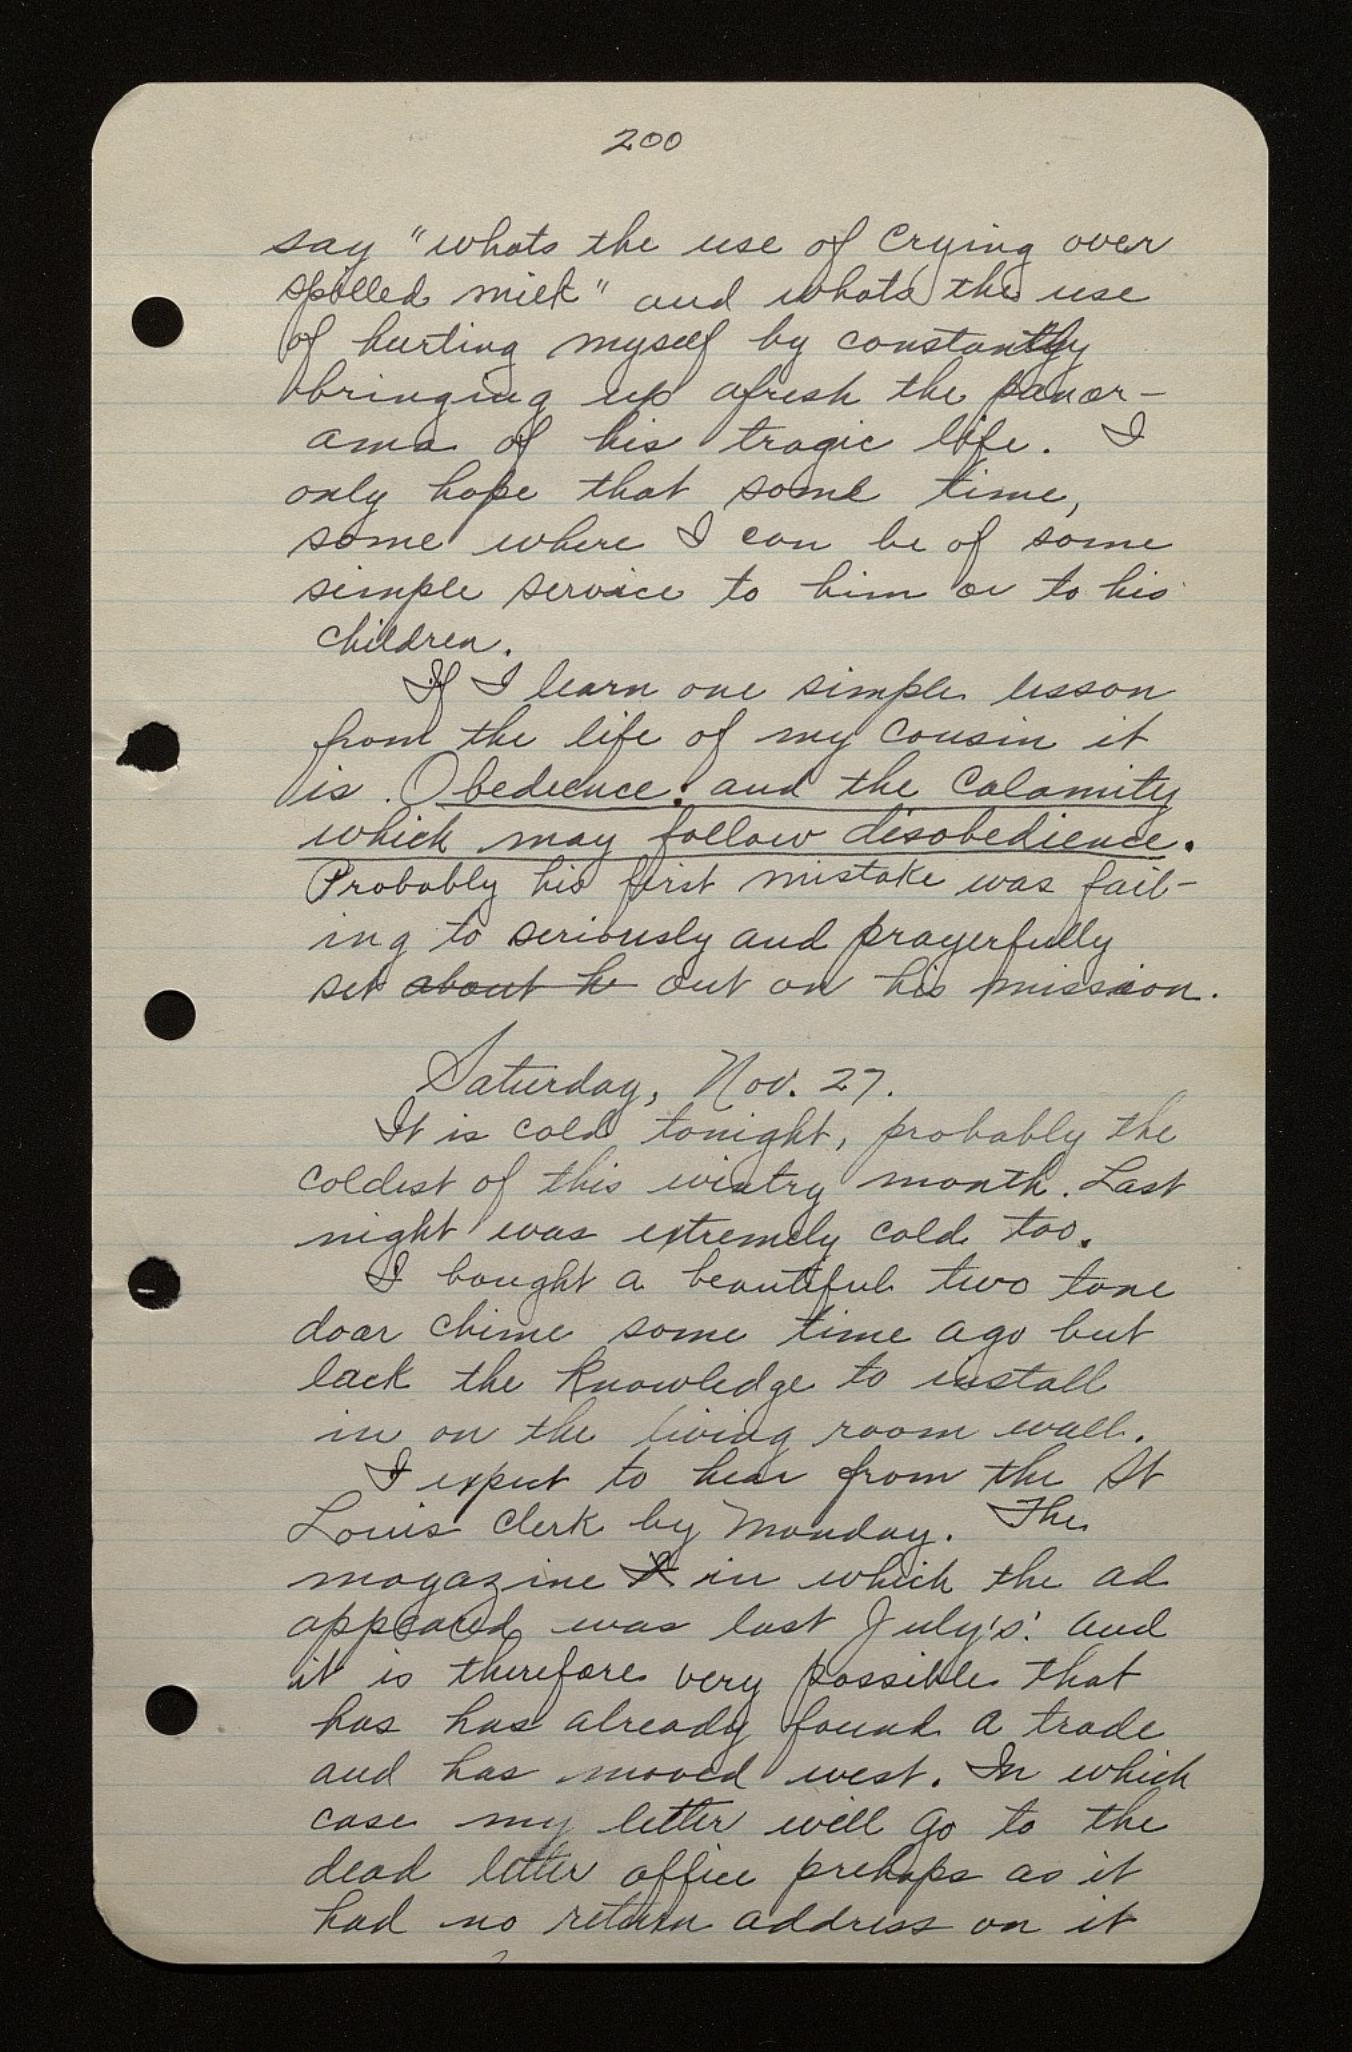 200
say "whats the use of crying over
spilled milk" and whats the use
of hurting myself by constantly
bringing up afresh the panor-
ama of his tragic life. I
only hope that some time,
some where I can be of some
simple service to him or to his
children.
If I learn one simple lesson
from the life of my cousin it
is Obedience. and the calamity
which may follow disobedience.
Probably his first mistake was fail-
ing to seriously and prayerfully
set about h out on his mission.
Saturday, Nov. 27.
It is cold tonight, probably the
coldest of this wintry month. Last
night was extremely cold too.
I bought a beautiful two tone
door chime some time ago but
lack the knowledge to install
in on the living room wall.
I expect to hear from the St
Louis Clerk by Monday. The
magazine I in which the ad
appeared was last July's. and
it is therefore very possible that
has has already found a trade
and has moved west. In which
case my letter will go to the
dead letter office prehaps as it
had no return address on it